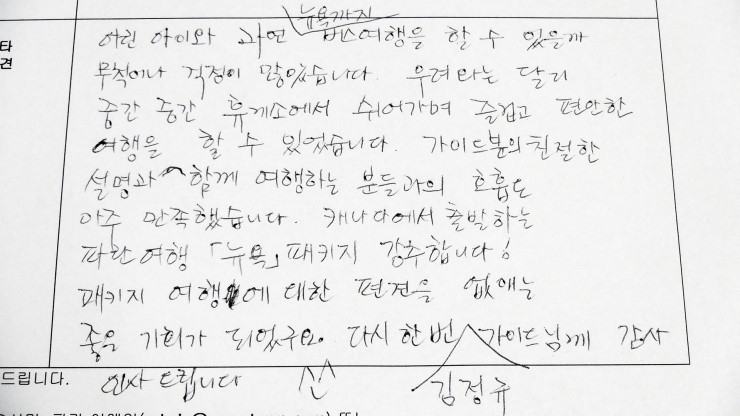 뉴욕까지
어린 아이와 과연 버스여행을 할 수 있을까
타
견
무척이나 걱정이 많았습니다. 우려와는 달리
중간 중간 휴게소에서 쉬어가며 즐겁고 편안한
여행을 할 수 있었습니다. 가이드분의 친절한
설명과 함께 여행하는 분들과의 호흡도
아주 만족했습니다. 캐나다에서 출발하는
파란여행 「뉴욕」 패키지 강추합니다!
패키지 여행에 대한 편견을 없애는
좋은 기회가 되었구요. 다시 한번 가이드님께 감사
드립니다. 인사 드립니다 김정규